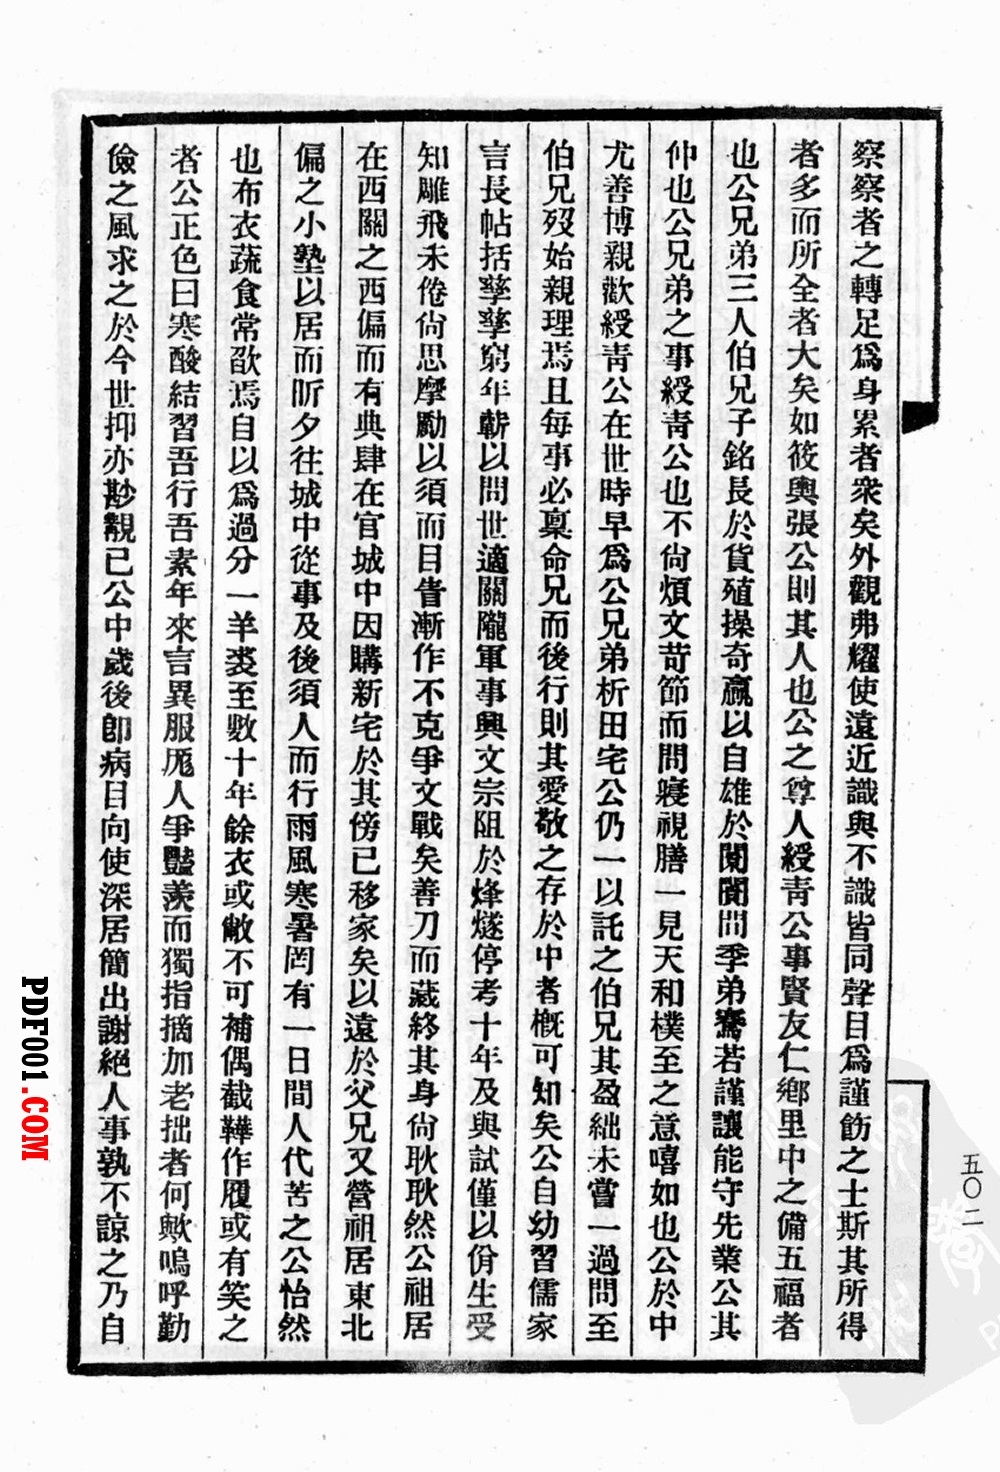 察察者之轉足爲身累者衆矣外觀弗耀使遠近識與不識皆同聲目爲謹飭之士斯其所得
者多而所全者大矣如筱輿張公則其人也公之尊人綬青公事賢友仁鄉里中之備五福者
也公兄弟三人伯兄子銘長於貨殖操奇贏以自雄於闤闠間季弟騫若謹讓能守先業公其
仲也公兄弟之事綬青公也不尙煩文苛節而問寢視膳一見天和樸至之意嘻如也公於中
尤善博親歡綬青公在世時早爲公兄弟析田宅公仍一以託之伯兄其盈絀未嘗一過問至
伯兄歿始親理焉且每事必稟命兄而後行則其愛敬之存於中者槪可知矣公自幼習儒家
言長帖括孳孳窮年蘄以問世適關隴軍事興文宗阻於烽燧停考十年及與試僅以佾生受
知雕飛未倦尙思摩勵以須而目眚漸作不克爭文戰矣善刀而藏終其身尙耿耿然公祖居
在西關之西偏而有典肆在官城中因購新宅於其傍已移家矣以遠於父兄又營祖居東北
偏之小塾以居而昕夕往城中從事及後須人而行雨風寒暑罔有一日間人代苦之公怡然
也布衣蔬食常欿焉自以爲過分一羊裘至數十年餘衣或敝不可補偶截鞾作履或有笑之
者公正色曰寒酸結習吾行吾素年來言異服厖人爭豔羨而獨指摘加老拙者何歟嗚呼勤
儉之風求之於今世抑亦尠覯已公中歲後卽病目向使深居簡出謝絕人事孰不諒之乃自
五〇二
PDF001.COM